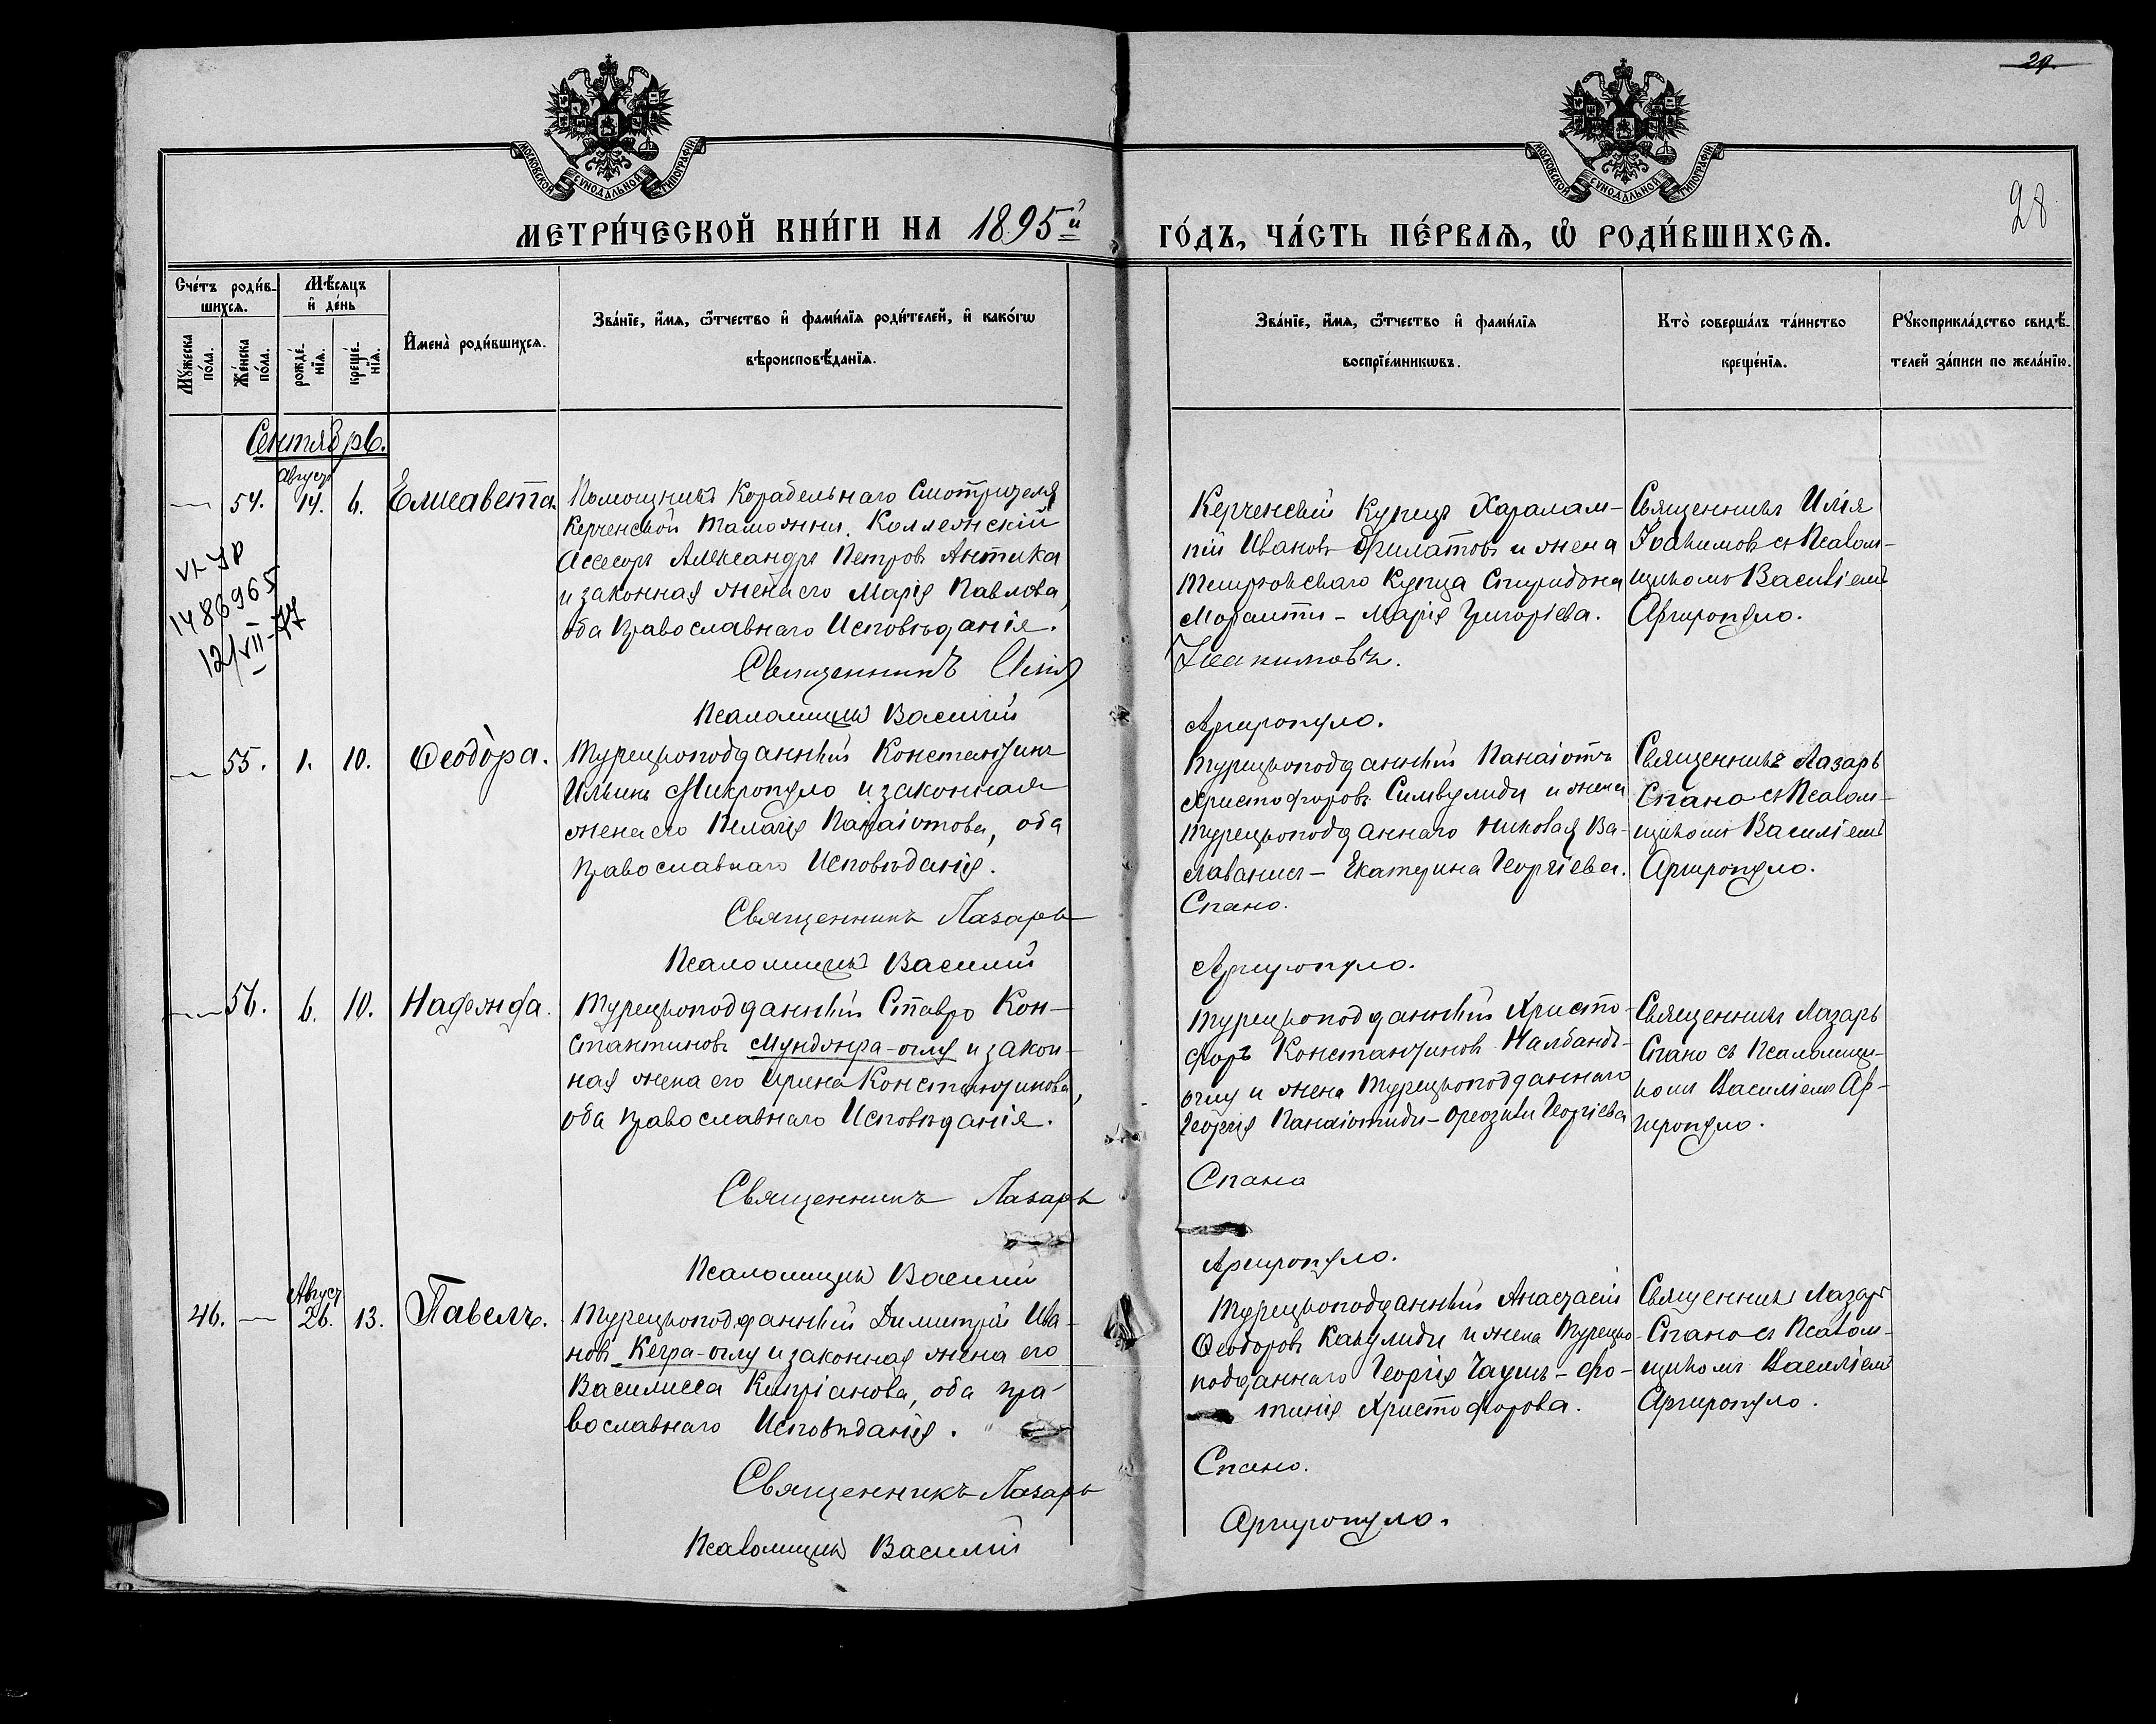 29.
28
МОСКОВСКОЙ СѴНОДАЛЬНОЙ ТИПОГРАФІИ
МОСКОВСКОЙ СѴНОДАЛЬНОЙ ТИПОГРАФІИ
МЕТРИ́ЧЕСКОЙ КНИ́ГИ НА 1895й
ГО́ДЪ, ЧА́СТЬ ПЕ́РВАѦ, Ѡ҆ РОДИ́ВШИХСѦ.
Сче́тъ роди́в-
шихсѧ.
Мꙋ́жеска
по́ла.
Же́нска
по́ла.
Мѣ́сяцъ
и҆ де́нь
рожде́-
нїѧ.
креще́-
нїѧ.
И҆мена̀ роди́вшихсѧ.
Зва́нїе, и҆́мѧ, ѻ҆́тчество и҆ фами́лїѧ роди́телей, и҆ како́гѡ
вѣроисповѣ́данїѧ.
Зва́нїе, и҆́мѧ, ѻ҆́тчество и҆ фами́лїѧ
воспрїе́мникѡвъ.
Кто̀ соверша́лъ та́инство
креще́нїѧ.
Рꙋкоприкла́дство свидѣ́-
телей за́писи по жела́нїю.
Сентябрь.
Августъ
— 54. 14. 6. Елисавета.
Помощникъ Корабельнаго Смотрителя
Керченской Таможни, Коллежскій
Ассесоръ Александръ Петровъ Антика
и законная жена его Марія Павлова,
оба Православнаго Исповѣданія.
Священникъ Илія
Псаломщикъ Василій
Керченскій Купецъ Харалам-
пій Ивановъ Филатовъ и жена
Темрюкскаго Купца Спиридона
Мораитти - Марія Григорьева.
Іоакимовъ.
Аргиропуло.
Священникъ Илія
Іоакимовъ съ Псалом-
щикомъ Василіемъ
Аргиропуло.
VI-ЯР
1486965
12/VII-77
— 55. 1. 10. Ѳеодора.
Турецкоподданный Константинъ
Ильинъ Микропуло и законная
жена его Пелагія Панаіотова, оба
Православнаго Исповѣданія.
Священникъ Лазарь
Псаломщикъ Василій
Турецкоподданный Панаіотъ
Христофоровъ Симвулиди и жена
Турецкоподданнаго Николая Ва-
славанисъ - Екатерина Георгіева.
Спано.
Аргиропуло.
Священникъ Лазарь
Спано съ Псалом-
щикомъ Василіемъ
Аргиропуло.
— 56. 6. 10. Надежда.
Турецкоподданный Ставро Кон-
стантиновъ Мунджра-оглу и закон-
ная жена его Ирина Константинова,
оба Православнаго Исповѣданія.
Священникъ Лазарь
Псаломщикъ Василій
Турецкоподданный Христо-
форъ Константиновъ Налбандъ-
оглу и жена Турецкоподданнаго
Георгія Панаіотиди - Георгіева
Спано
Аргиропуло.
Священникъ Лазарь
Спано съ Псаломщи-
комъ Василіемъ Ар-
гиропуло.
Август
46. — 26. 13. Павелъ.
Турецкоподданный Димитрій Ива-
новъ Кегра-оглу и законная жена его
Василисса Кипріанова, оба пра-
вославнаго Исповѣданія.
Священникъ Лазарь
Псаломщикъ Василій
Турецкоподданный Анастасій
Ѳеодоровъ Какулиди и жена Турецко-
подданнаго Георгія Чаушъ - Фо-
тинія Христофорова.
Спано.
Аргиропуло.
Священникъ Лазарь
Спано съ Псалом-
щикомъ Василіемъ
Аргиропуло.